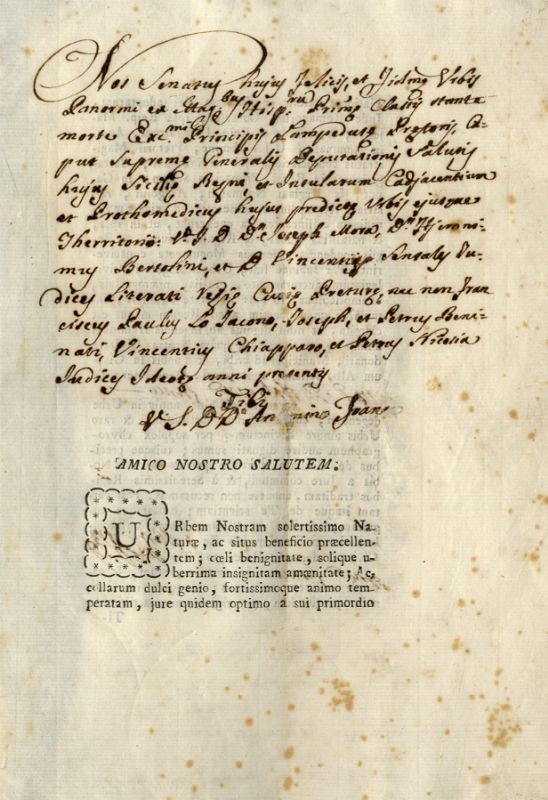 Nos Senatus hujus Felicis, et Fidmę Urbis
Panormi ex Mag.bus Hisp.rum Primę Classis stante
morte Exc.mi Principis Lampedusę Pretoris, Ca-
put Supremę Generalis Deputationis Salutis
hujus Sicilię Regni, et Insularum Cadjacentium
et Prothomedicus hujus predictę Urbis ejusque
Therritorio: V. J. D. D.n Joseph Mora, D.n Hyeroni-
mus Bertolini, et D. Vincentius Sensales Ju-
dices Literati Regię Curię Preturę, nec non Fran
ciscus Paulus Lo Jacono, Joseph, et Petrus Beni-
nati, Vincentius Chiapparo, et Petrus Nicosia
Judices Ideotę anni presentis
Tibi
V. J. D. D.n An nino Fran
AMICO NOSTRO SALUTEM:
URbem Nostram solertissimo Na-
turæ, ac situs beneficio præcellen-
tem; cœli benignitate, solique u-
berrima insignitam amœnitate; Ac-
collarum dulci genio, fortissimoque animo tem-
peratam, jure quidem optimo a sui primordio